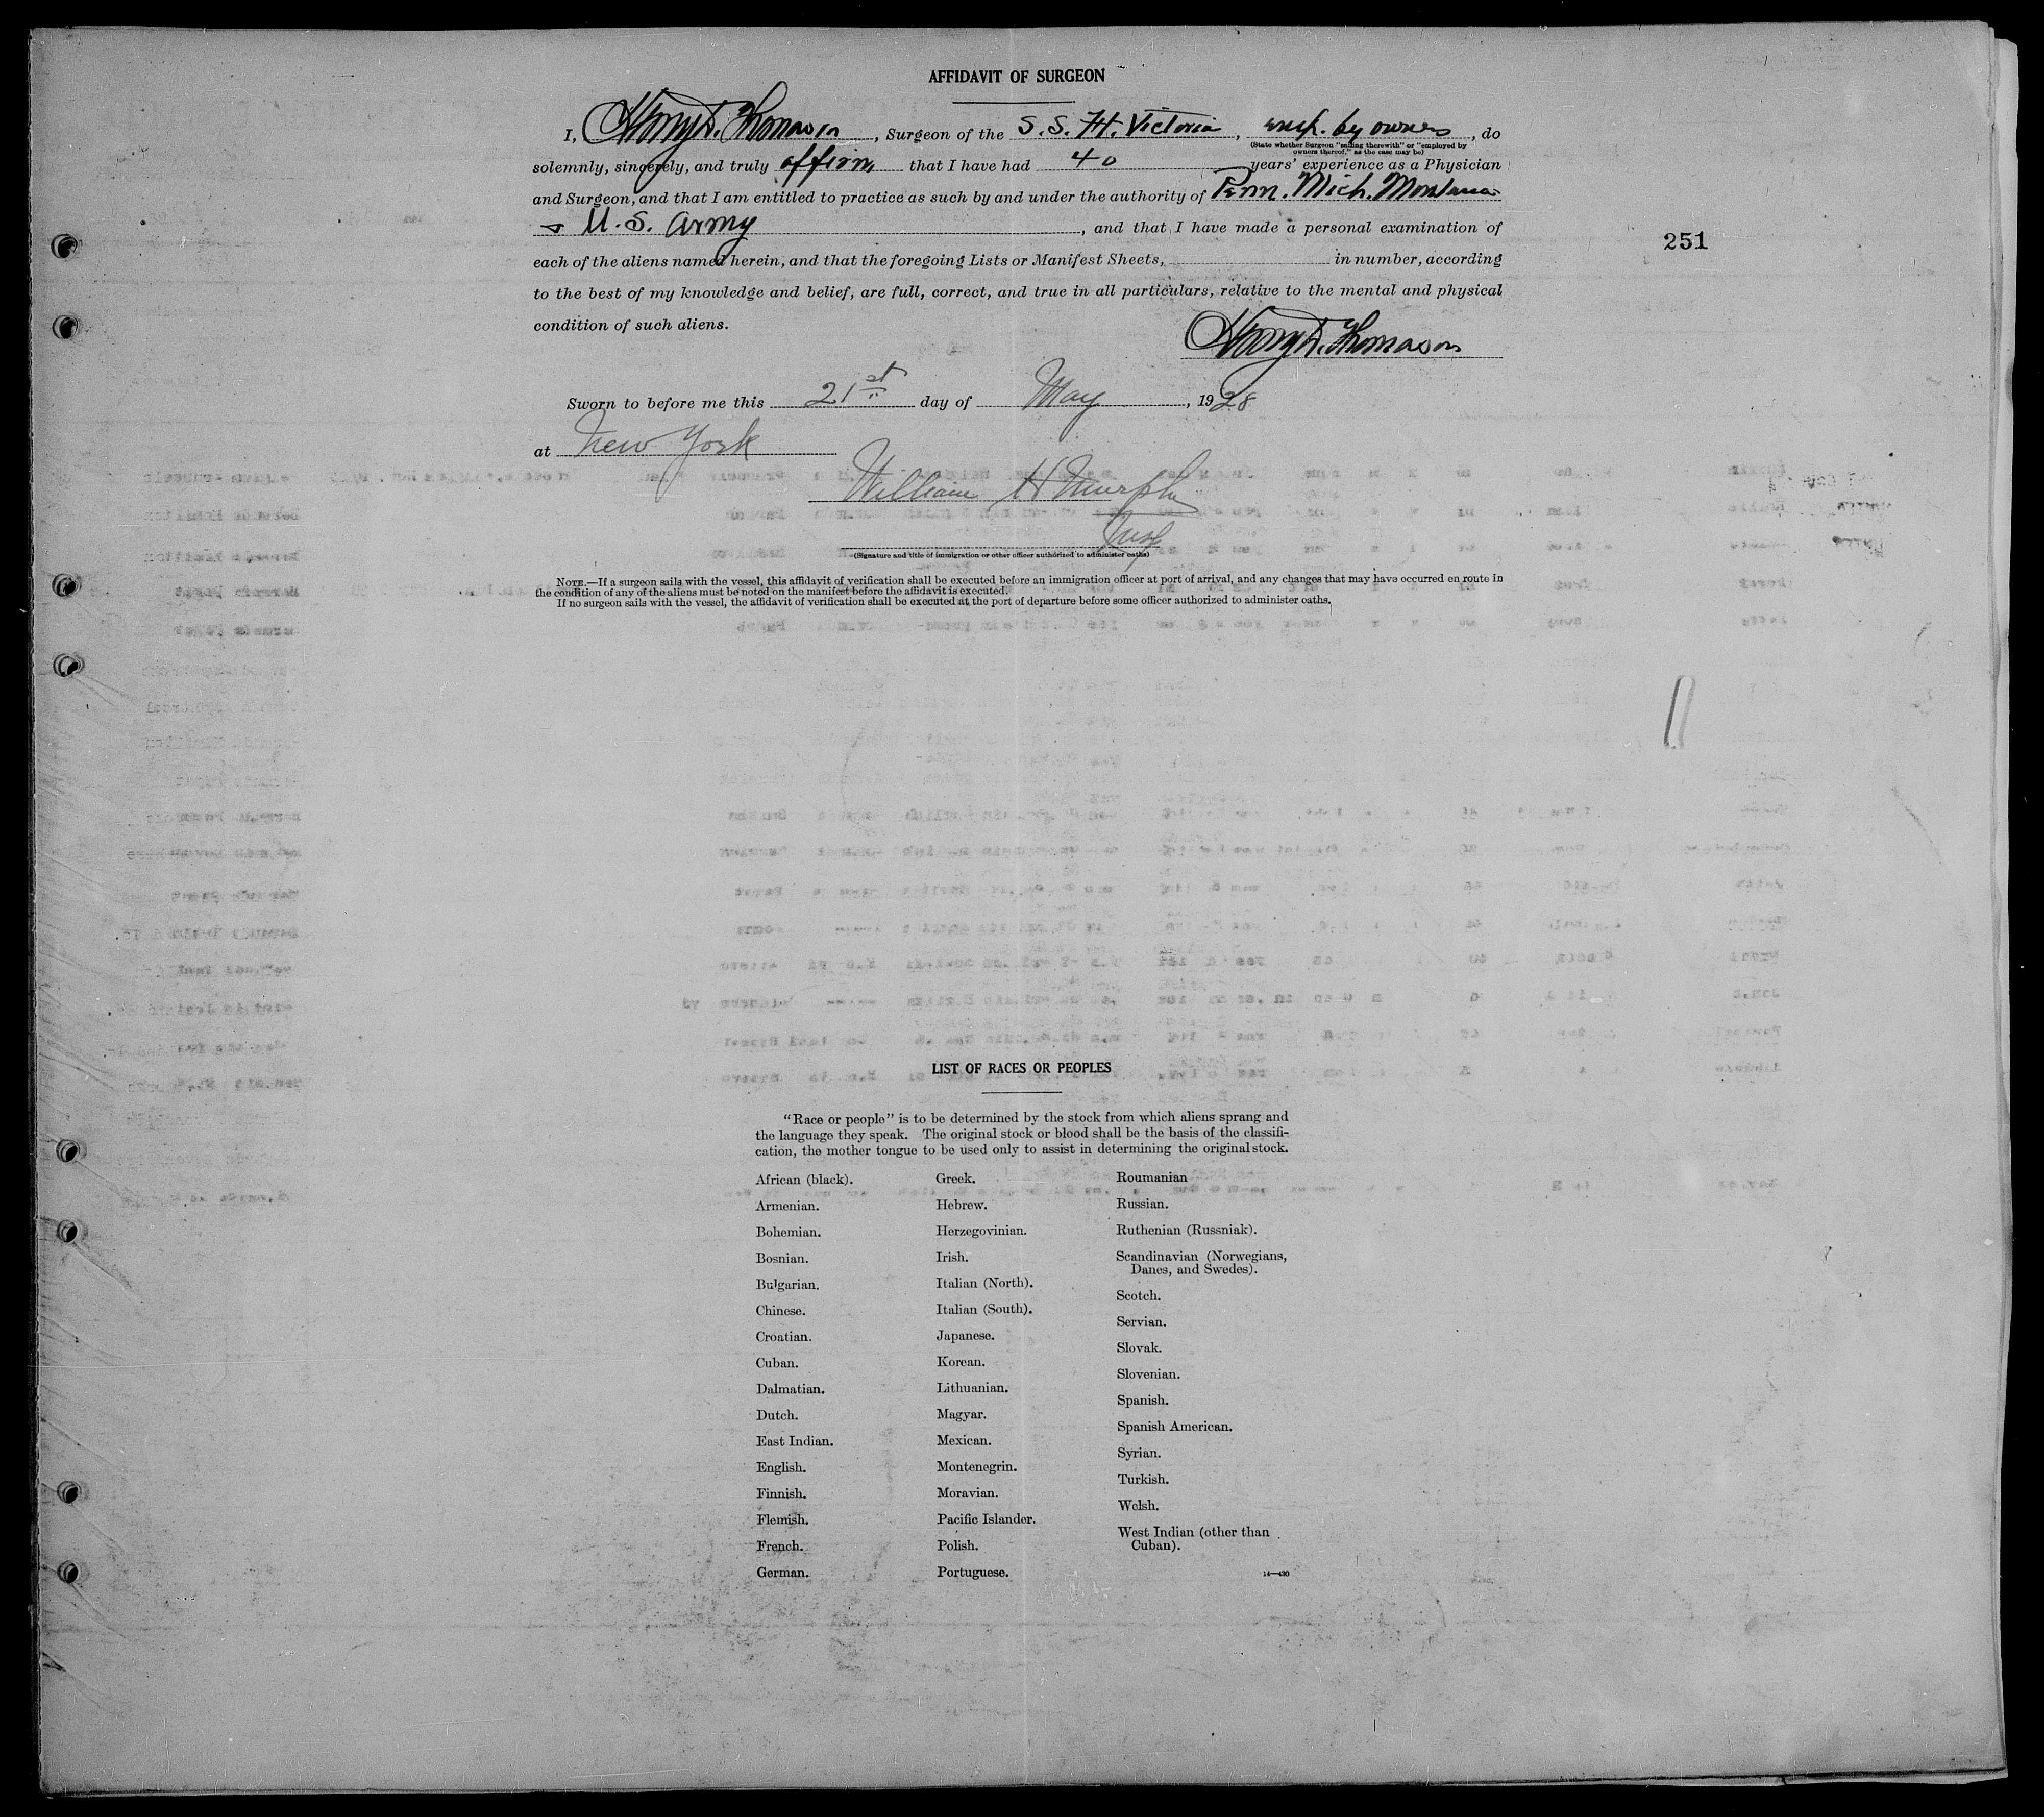 AFFIDAVIT OF SURGEON
I, Henry D. Thomason, Surgeon of the S.S. Ft. Victoria, emp. by owners, do
(State whether Surgeon "sailing therewith" or "employed by
owners thereof," as the case may be)
solemnly, sincerely, and truly affirm that I have had 40 years' experience as a Physician
and Surgeon, and that I am entitled to practice as such by and under the authority of Penn. Mich. Montana
+ U.S. Army, and that I have made a personal examination of
251
each of the aliens named herein, and that the foregoing Lists or Manifest Sheets, in number, according
to the best of my knowledge and belief, are full, correct, and true in all particulars, relative to the mental and physical
condition of such aliens.
Henry D. Thomason
Sworn to before me this 21st day of May, 1928
at New York
William H Murphy
Insp
(Signature and title of immigration or other officer authorized to administer oaths)
NOTE.—If a surgeon sails with the vessel, this affidavit of verification shall be executed before an immigration officer at port of arrival, and any changes that may have occurred en route in
the condition of any of the aliens must be noted on the manifest before the affidavit is executed.
If no surgeon sails with the vessel, the affidavit of verification shall be executed at the port of departure before some officer authorized to administer oaths.
LIST OF RACES OR PEOPLES
"Race or people" is to be determined by the stock from which aliens sprang and
the language they speak. The original stock or blood shall be the basis of the classifi-
cation, the mother tongue to be used only to assist in determining the original stock.
African (black).
Armenian.
Bohemian.
Bosnian.
Bulgarian.
Chinese.
Croatian.
Cuban.
Dalmatian.
Dutch.
East Indian.
English.
Finnish.
Flemish.
French.
German.
Greek.
Hebrew.
Herzegovinian.
Irish.
Italian (North).
Italian (South).
Japanese.
Korean.
Lithuanian.
Magyar.
Mexican.
Montenegrin.
Moravian.
Pacific Islander.
Polish.
Portuguese.
Roumanian
Russian.
Ruthenian (Russniak).
Scandinavian (Norwegians,
Danes, and Swedes).
Scotch.
Servian.
Slovak.
Slovenian.
Spanish.
Spanish American.
Syrian.
Turkish.
Welsh.
West Indian (other than
Cuban).
14—430